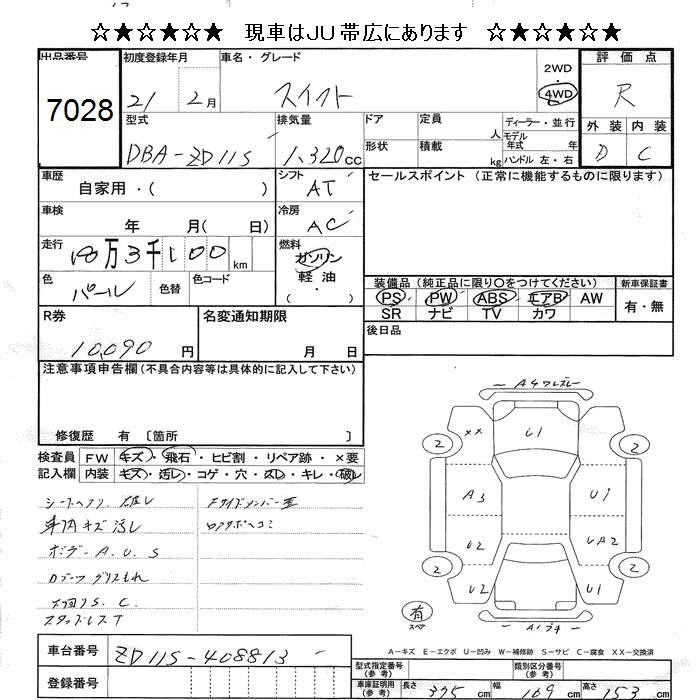 ☆★☆★☆★☆ 現車はJU帯広にあります ☆★☆★☆★☆
出品番号 初度登録年月 車名・グレード 2WD・4WD 評価点
7028 21 2月 スイフト R
型式 排気量 ドア 定員 人 ディーラー・並行 外装 内装
DBA-ZD11S 1,320cc 形状 積載 kg モデル年式 年 ハンドル 左・右 D C
車歴 自家用・( ) シフト AT セールスポイント (正常に機能するものに限ります)
車検 年 月( 日) 冷房 AC
走行 10万3千100km 燃料 ガソリン・軽油・( )
色 パール 色替 色コード
装備品 (純正品に限り○をつけてください) 新車保証書
PS PW ABS エアB AW 有・無
SR ナビ TV カワ
R券 10,090円 名変通知期限 月 日 後日品
注意事項申告欄(不具合内容等は具体的に記入して下さい)
修復歴 有 〔箇所 〕
検査員記入欄 FW キズ・飛石・ヒビ割・リペア跡・×要
内装 キズ・汚レ・コゲ・穴・スレ・キレ・破レ
シートヘタリ 破レ Fサイドメンバー歪
車内キズ汚レ ロアサポヘコミ
ボデーA.U.S
Dブーツグリスもれ
下回りS.C.
スタッドレスT
A4ワレズレ
×× U1
2 2
A3 U1
U2 UA2
2 2
U2 U1
有 スペア
A1ブチ
A-キズ E-エクボ U-凹み W-補修跡 S-サビ C-腐食 XX-交換済
車台番号 ZD11S-408813
登録番号
型式指定番号(参考) 類別区分番号(参考)
車庫証明用(参考) 長さ 375cm 幅 169cm 高さ 153cm